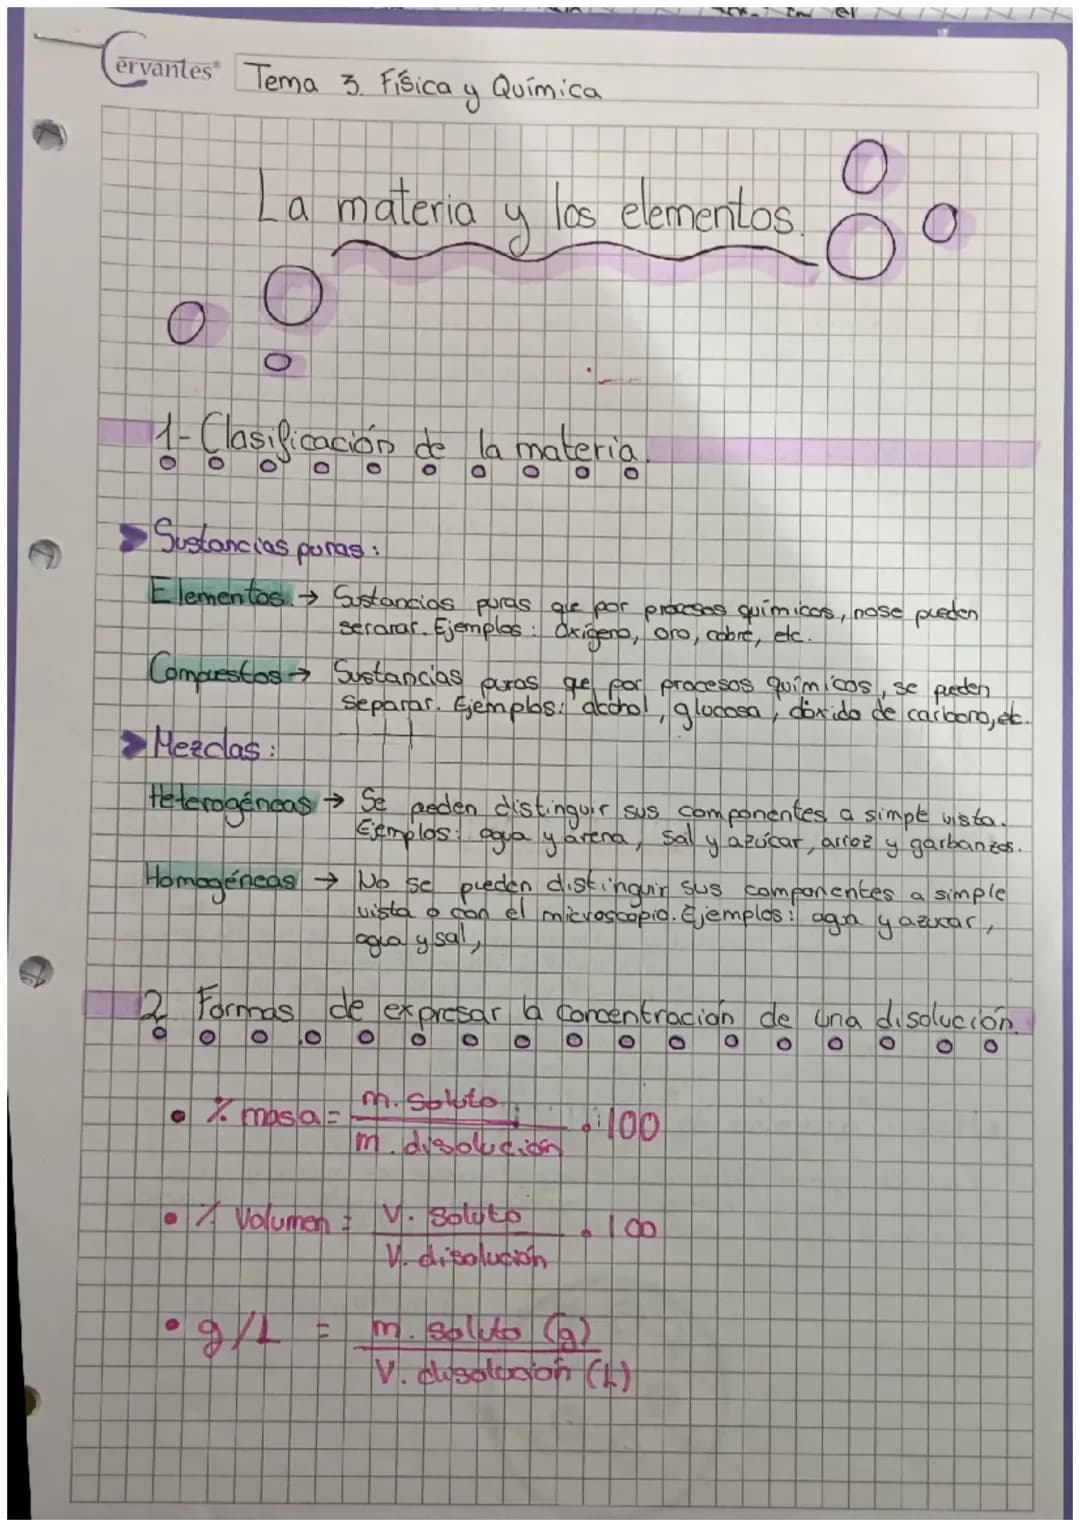 Cervantes
Tema 3. Física y Química
La materia y los elementos.
1- Clasificación de la materia.
Sustancias puras:
Elementos. → Sustancias puras que por procesos químicos, nose pueden
serarar. Ejemplos: Oxígeno, oro, cobre, etc.
Compuestos → Sustancias puras que por procesos químicos, se pueden
separar. Ejemplos: alcohol, glucosa, dóxido de carbono, etc.
Mezclas:
Heterogéneas → Se peden distinguir sus componentes a simple vista.
Ejemplos: agua y arena, sal y azúcar, arroz y garbanzos.
Homogéneas → No se pueden distinguir sus componentes a simple
vista o con el microscopio. Ejemplos: agua y azucar,
agua y sal,
2 Formas de expresar la concentración de una disolución.
• % masa = m. soluto / m. disolución · 100
• % Volumen = V. soluto / V. disolución · 100
• g/L = m. soluto (g) / V. disolución (L)